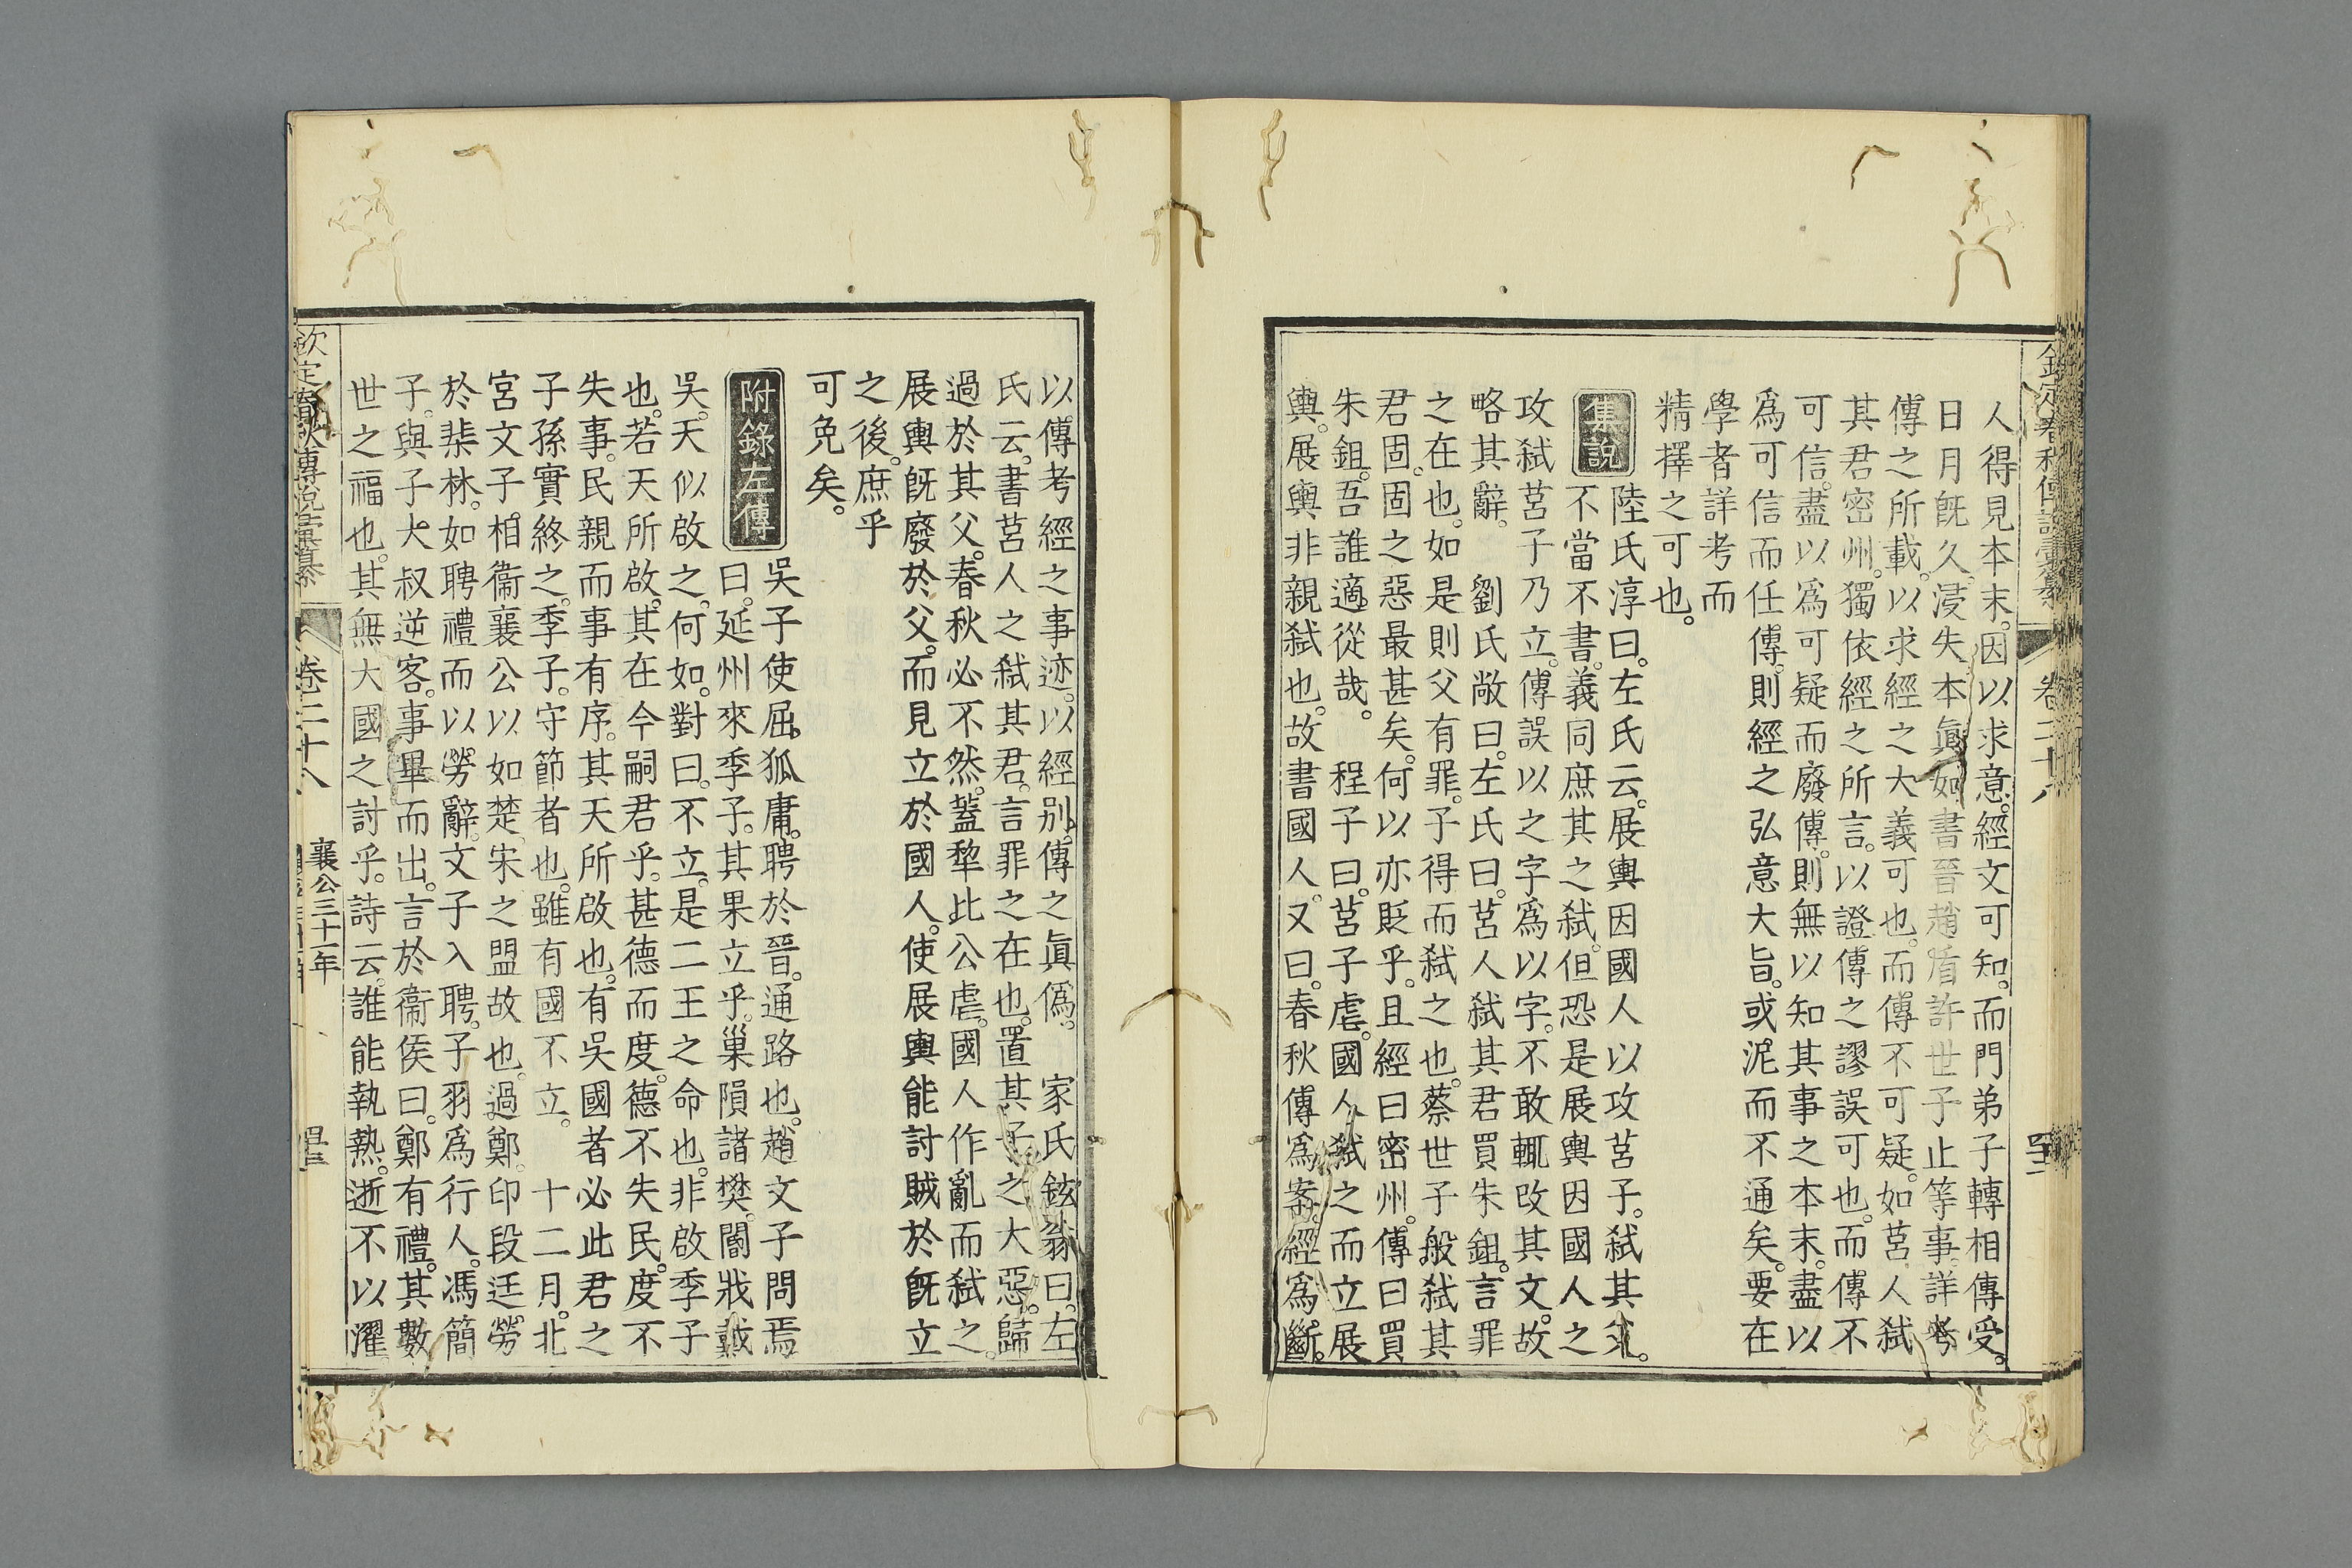 人得見本末。因以求意。經文可知。而門弟子轉相傳受。
日月旣久。浸失本眞。如書晉趙盾許世子止等事。詳考
傳之所載。以求經之大義可也。而傳不可疑。如莒人弑
其君密州。獨依經之所言。以證傳之謬誤可也。而傳不
可信。盡以爲可疑而廢傳。則無以知其事之本末。盡以
爲可信而任傳。則經之弘意大旨。或泥而不通矣。要在
學者詳考而
精擇之可也。
集說
陸氏淳曰。左氏云。展輿因國人以攻莒子。弑其父。
不當不書。義同庶其之弑。但恐是展輿因國人之
攻弑莒子乃立。傳誤以之字爲以字。不敢輒改其文。故
略其辭。 劉氏敞曰。左氏曰。莒人弑其君買朱鉏。言罪
之在也。如是則父有罪。子得而弑之也。蔡世子般弑其
君固。固之惡最甚矣。何以亦貶乎。且經曰密州。傳曰買
朱鉏。吾誰適從哉。 程子曰。莒子虐。國人弑之而立展
輿。展輿非親弑也。故書國人。又曰。春秋傳爲案。經爲斷。
卷二十八
以傳考經之事迹。以經別傳之眞僞。 家氏鉉翁曰。左
氏云。書莒人之弑其君。言罪之在也。置其子之大惡。歸
過於其父。春秋必不然。蓋犂比公虐。國人作亂而弑之。
展輿旣廢於父。而見立於國人。使展輿能討賊於旣立
之後。庶乎
可免矣。
附錄左傳
吳子使屈。狐庸。聘於晉。通路也。趙文子問焉
曰。延州來季子。其果立乎。巢隕諸樊。閽戕戴
吳。天似啟之。何如。對曰。不立。是二王之命也。非啟季子
也。若天所啟。其在今嗣君乎。甚德而度。德不失民。度不
失事。民親而事有序。其天所啟也。有吳國者必此君之
子孫實終之。季子。守節者也。雖有國不立。 十二月。北
宮文子。相衞襄公以如楚。宋之盟故也。過鄭。印段廷勞
於棐林。如聘禮而以勞辭。文子入聘。子羽爲行人。馮簡
子。與子大叔逆客。事畢而出。言於衞侯曰。鄭有禮。其數
世之福也。其無大國之討乎。詩云。誰能執熱。逝不以濯
欽定春秋傳說彙纂
卷二十八
襄公三十一年